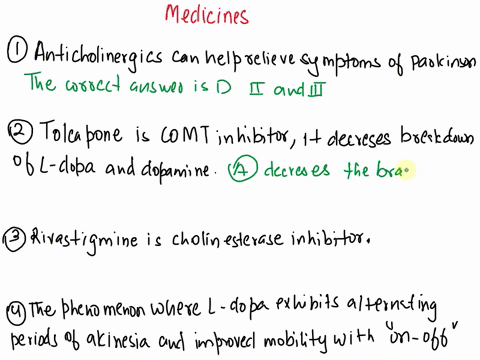 Medicines
① Anticholinergics can help relieve symptoms of Parkinson
The correct answer is D II and III
② Tolcapone is COMT inhibitor, it decreses breakdown
of L-dopa and dopamine. Ⓐ decreses the brea
③ Rivastigmine is cholinesterase inhibitor.
④ The phenomenon where L-dopa exhibits alternating
periods of akinesia and improved mobility with "on-off"